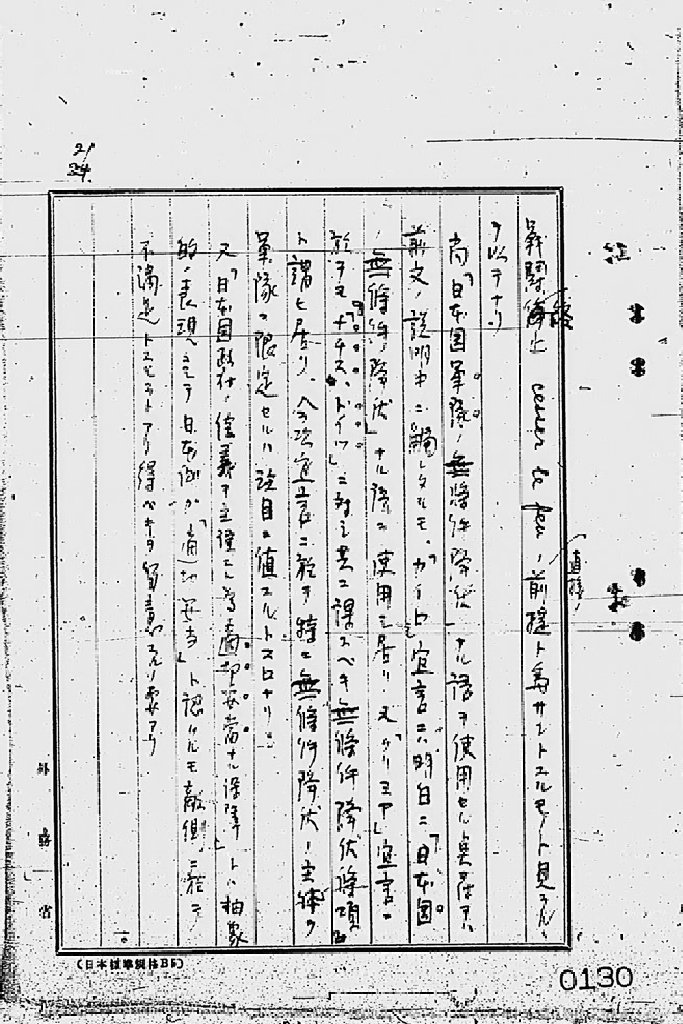 21
24
戦闘停止 cesser le feu ノ前提ト為サントスルモノト見ユル
直接ノ
ヲ以テナリ
尚「日本国軍隊ノ無條件降伏」ナル語ヲ使用セル点
前文ノ説明中ニ触レタルモ、「カイロ」宣言ニハ明白ニ「日本国
ノ無條件降伏」ナル語ヲ使用シ居リ又「クリミヤ」宣言ニ
於テモ「ナチス、ドイツ」ニ対シ共ニ課スベキ無條件降伏條項
ト謂ヒ居リ、今次宣言ニ於テ特ニ無條件降伏ノ主体ヲ
軍隊ニ限定セルハ注目ニ値スルトコロナリ
又「日本国政府ノ信義」ヲ主権トシ適切妥当ナル保障」トハ抽象
的ノ表現ニシテ日本側ガ「適切妥当」ト認ムルモ敵側ニ於テ
不満足トスルコトアリ得ベキヲ留意スルノ要アリ
外務省
(日本標準規格B5)
0130